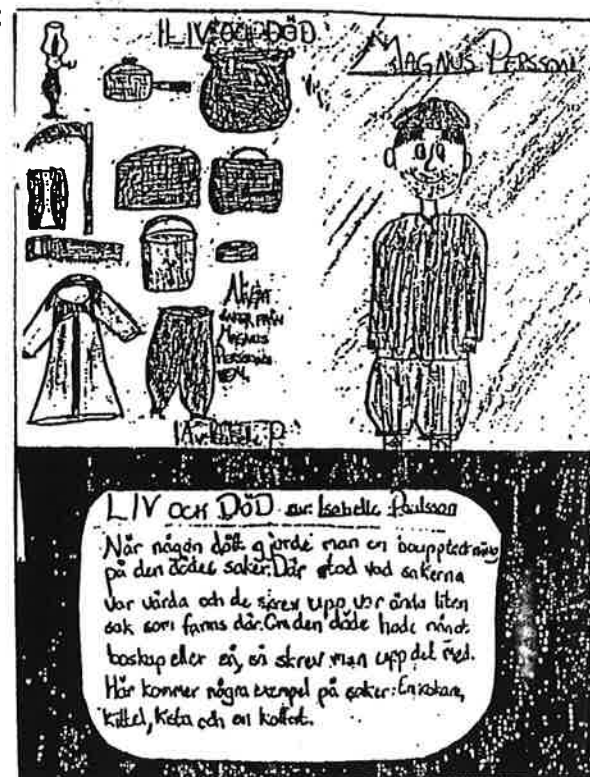 LIV OCH DÖD
MAGNUS PERSSON
NÅGRA
SAKER FRÅN
MAGNUS
PERSSONS
HEM.
Av: Isabelle P
LIV OCH DÖD av: Isabelle Paulsson
När någon dött gjorde man en bouppteckning
på den dödes saker. Där stod vad sakerna
var värda och de skrev upp var ända liten
sak som fanns där. Om den döde hade något
boskap eller så, så skrev man upp det med.
Här kommer några exempel på saker: En
kittel, och en koffert.